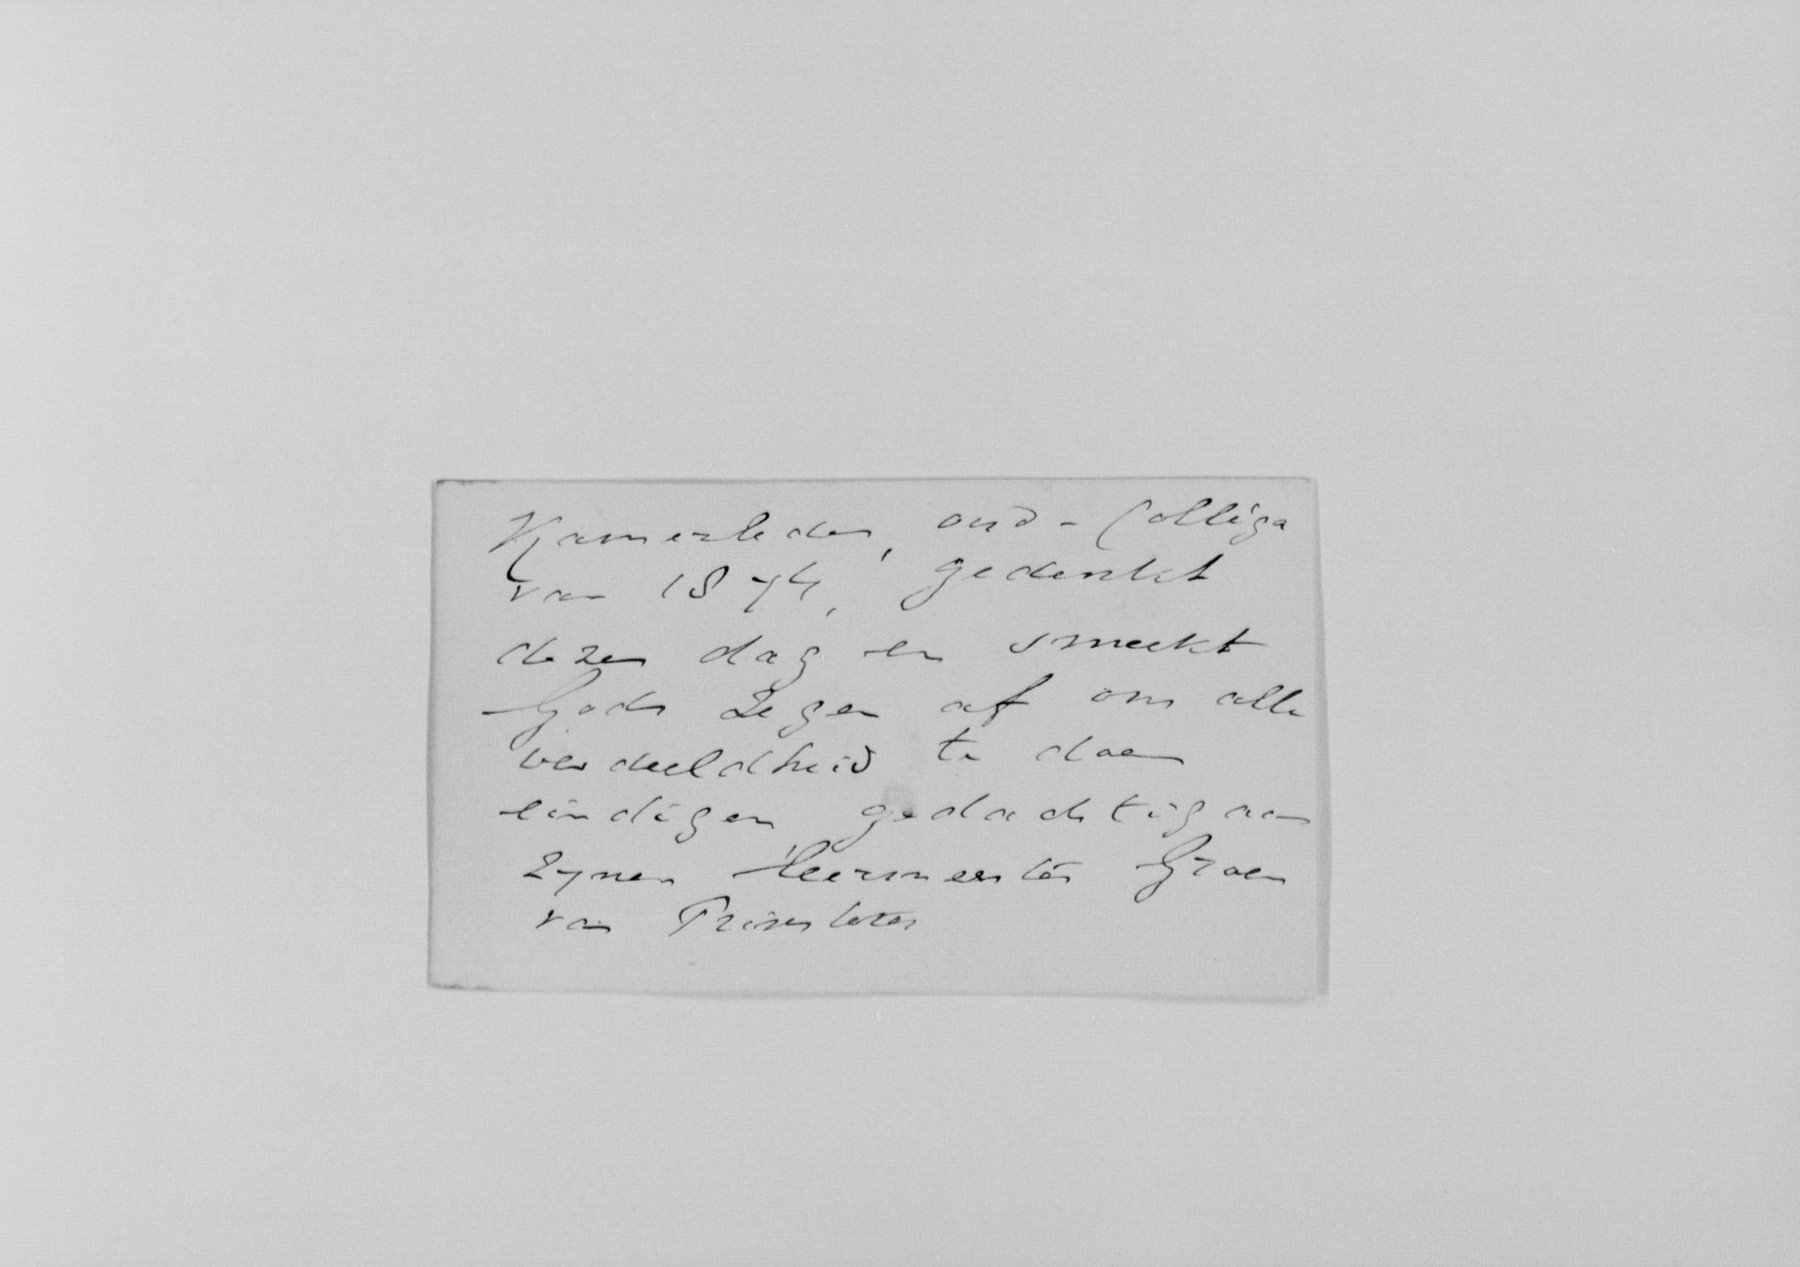 Kamerleden, oud-Colliga
van 1874, gedenkt
dezen dag en smeekt
Gods Zegen af om alle
verdeeldheid te doen
eindigen, gedachtig aan
zynen Leermeester Groen
van Prinsterer